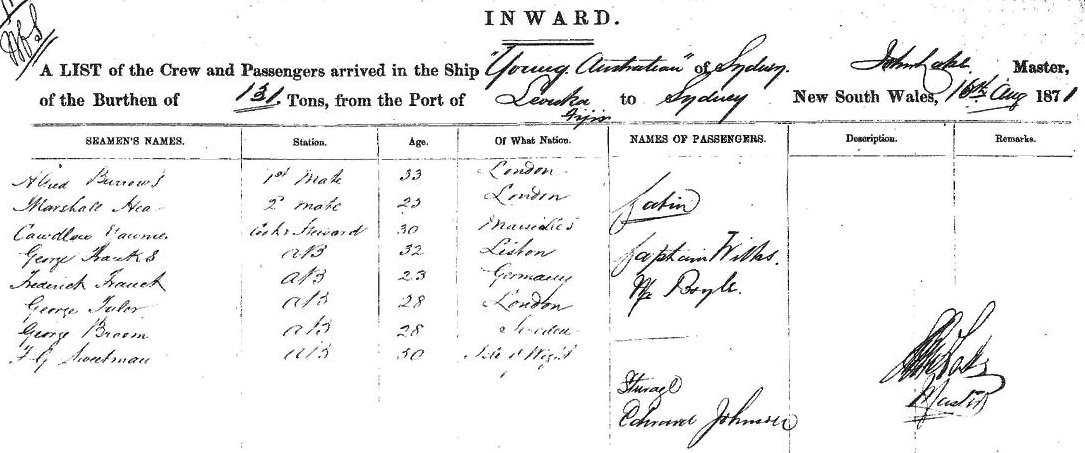 INWARD.
A LIST of the Crew and Passengers arrived in the Ship "Young Australian" of Sydney. John Lake Master,
of the Burthen of 131. Tons, from the Port of Levuka Fijis to Sydney New South Wales, 16th Aug 1871
SEAMEN'S NAMES. Station. Age. Of What Nation. NAMES OF PASSENGERS. Description. Remarks.
Alfred Burrows 1st Mate 33 London
Marshall 2d mate 23 London Cabin
Cook & Steward 30 Marseilles
George Franks AB 32 Lisbon Captain Wilks.
Frederick Franck AB 23 Germany Mr Boyle.
George Tylor AB 28 London
George Broom AB 28 Sweden
F G Sweetman AB 30 Isle of Wight
Steerage
Edward Johnson
Master